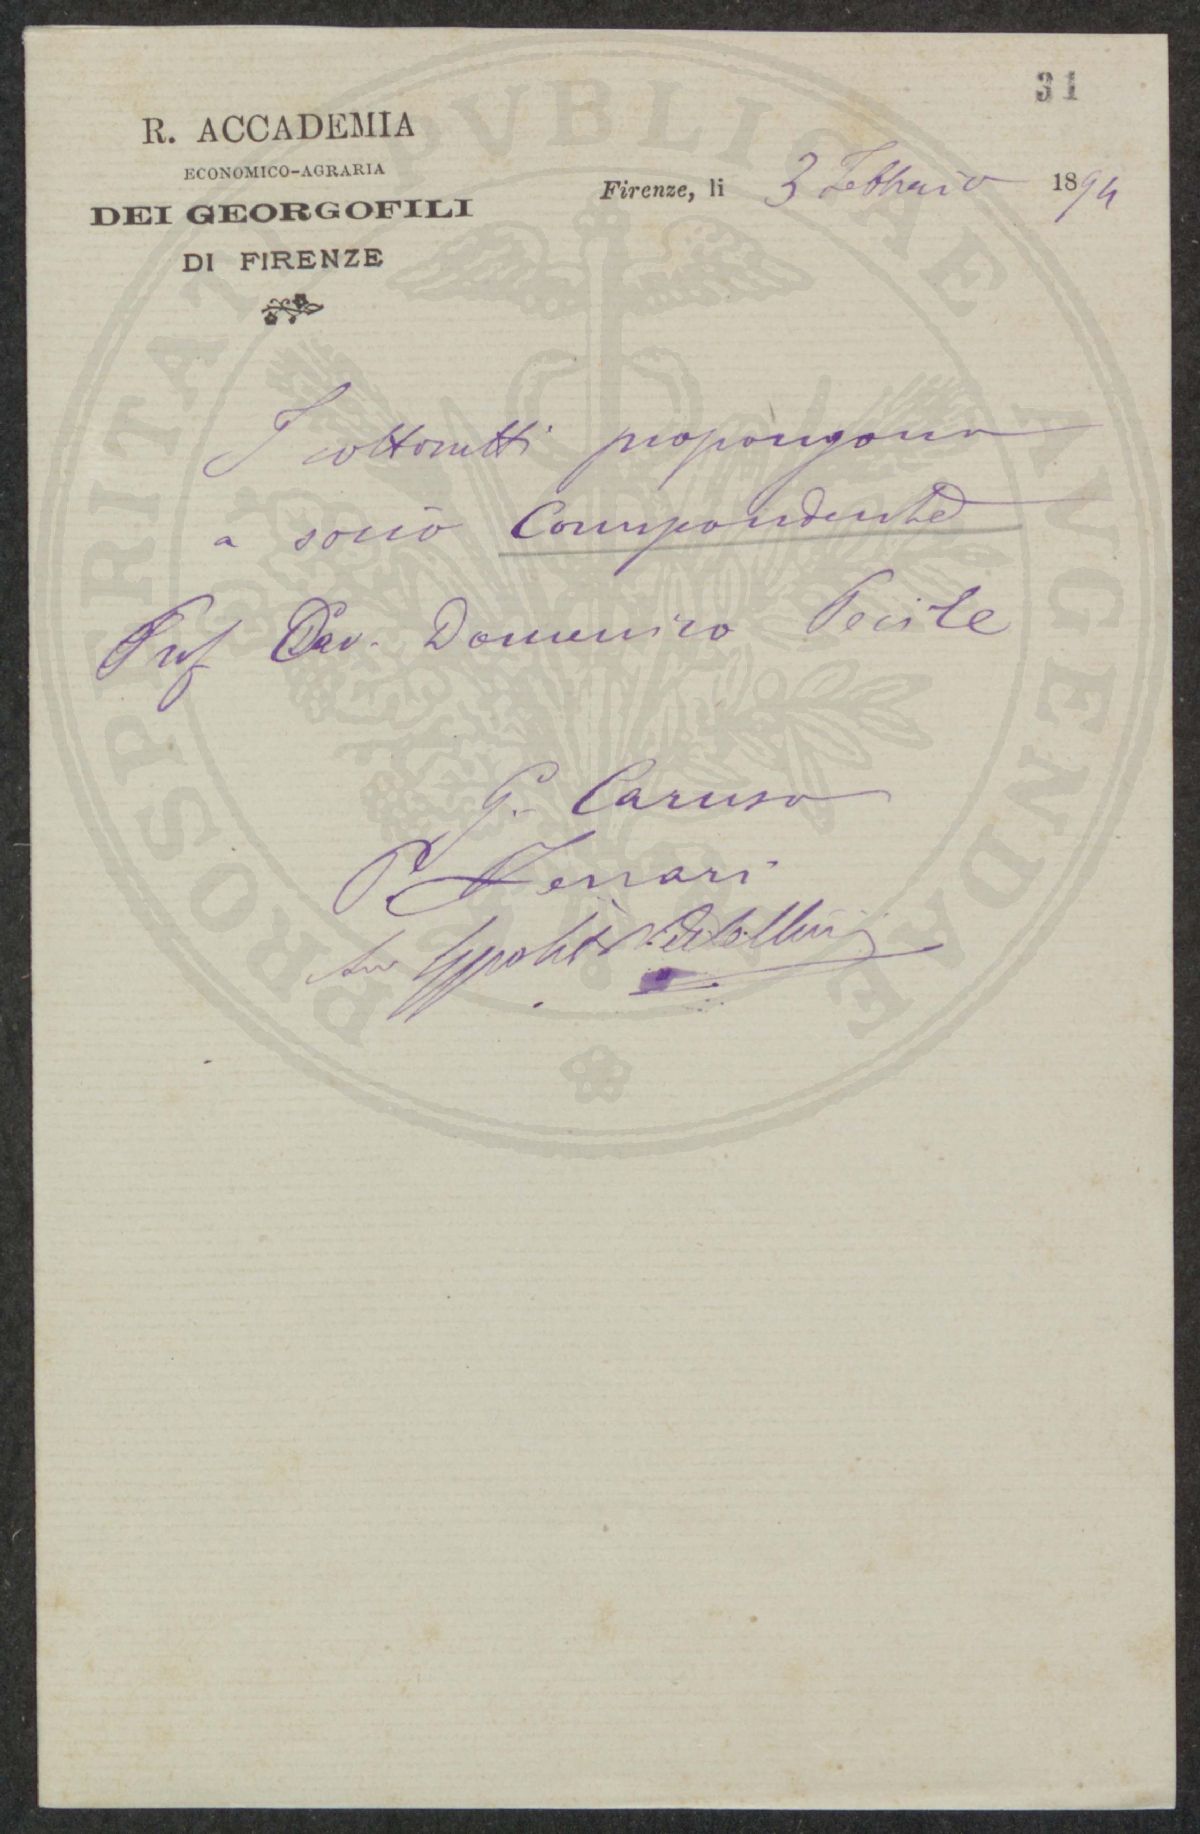 31
R. ACCADEMIA
ECONOMICO-AGRARIA
DEI GEORGOFILI
DI FIRENZE
Firenze, li 3 Febbraio 1894
I sottoscritti propongono
a socio Corrispondente
Prof Cav. Domenico Pecile
G. Caruso
P. Ferrari
PROSPERITATI PVBLICAE AVGENDAE